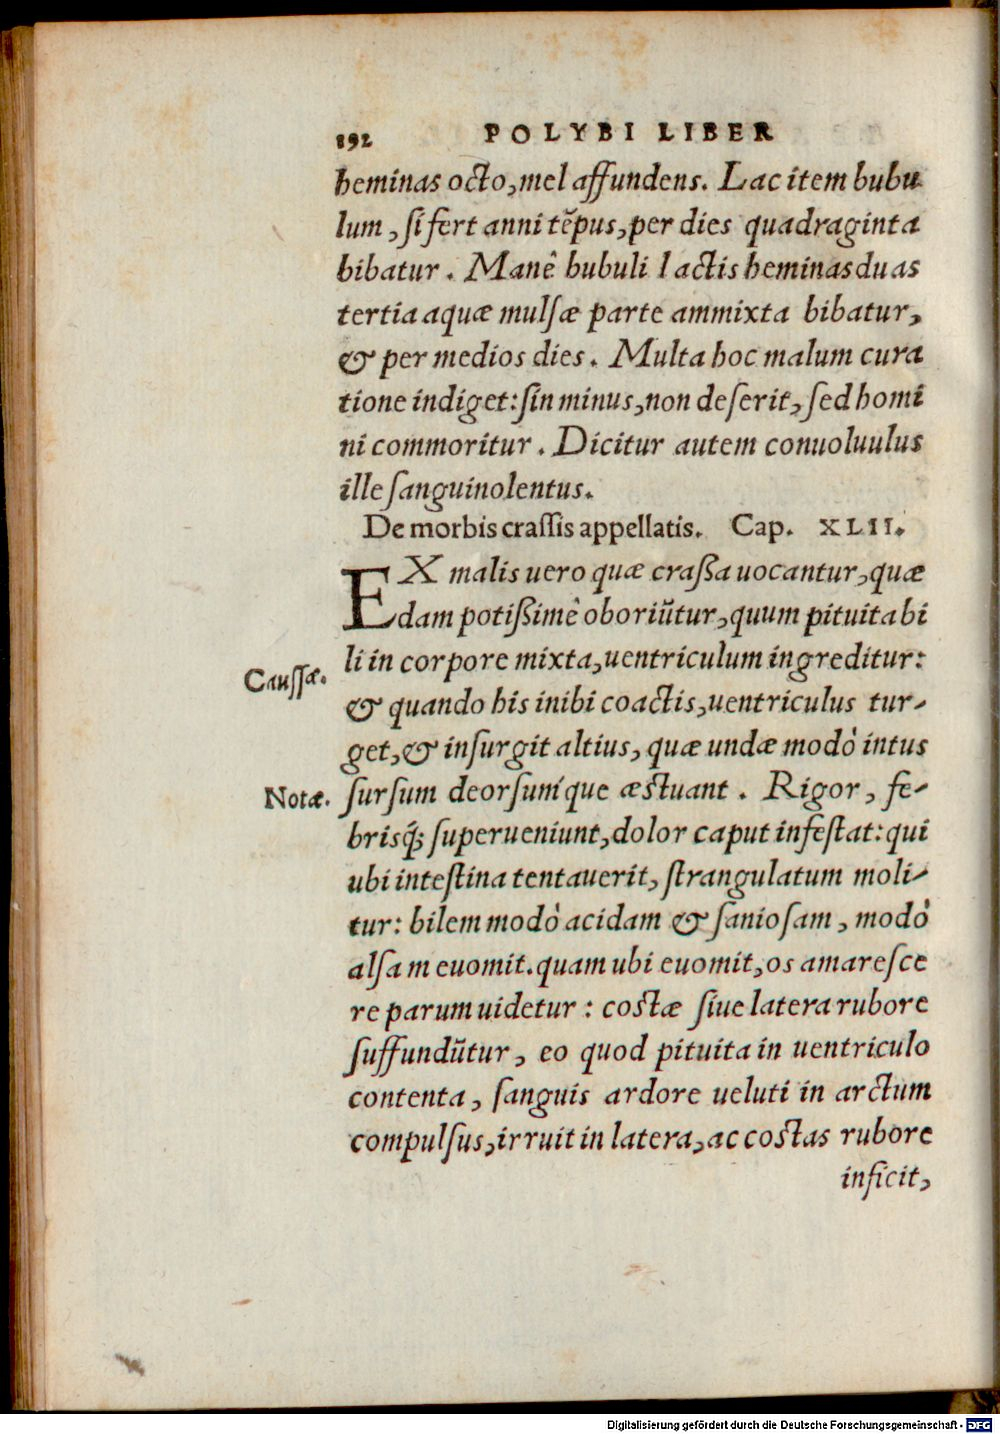 192 POLYBI LIBER
heminas octo, mel affundens. Lac item bubu
lum, si fert anni tẽpus, per dies quadraginta
bibatur. Manè bubuli lactis heminas duas
tertia aquæ mulsæ parte ammixta bibatur,
& per medios dies. Multa hoc malum cura
tione indiget: sin minus, non deserit, sed homi
ni commoritur. Dicitur autem conuoluulus
ille sanguinolentus.
De morbis crassis appellatis. Cap. XLII.
EX malis uero quæ crassa uocantur, quæ
dam potissimè oboriũtur, quum pituita bi
li in corpore mixta, uentriculum ingreditur:
Caussæ.
& quando his inibi coactis, uentriculus tur-
get, & insurgit altius, quæ undæ modò intus
Notæ.
sursum deorsum'que æstuant. Rigor, fe-
brisq́; superueniunt, dolor caput infestat: qui
ubi intestina tentauerit, strangulatum moli-
tur: bilem modò acidam & saniosam, modò
alsam euomit. quam ubi euomit, os amaresce
re parum uidetur: costæ siue latera rubore
suffundũtur, eo quod pituita in uentriculo
contenta, sanguis ardore ueluti in arctum
compulsus, irruit in latera, ac costas rubore
inficit,
Digitalisierung gefördert durch die Deutsche Forschungsgemeinschaft - DFG